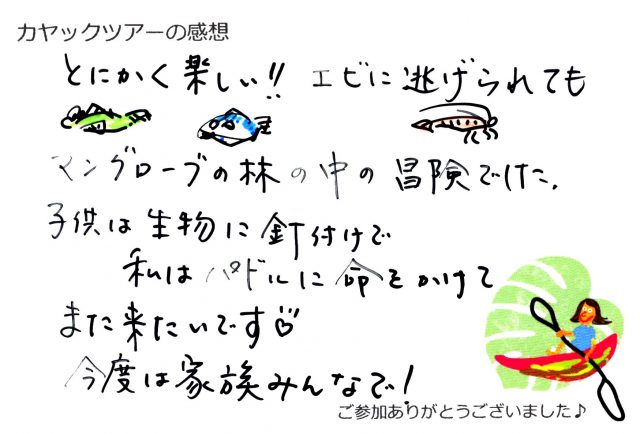 カヤックツアーの感想
とにかく楽しい!! エビに逃げられても
マングローブの林の中の冒険でした。
子供は生物に釘付けで
私はパドルに命をかけて
また来たいです♡
今度は家族みんなで!
ご参加ありがとうございました♪